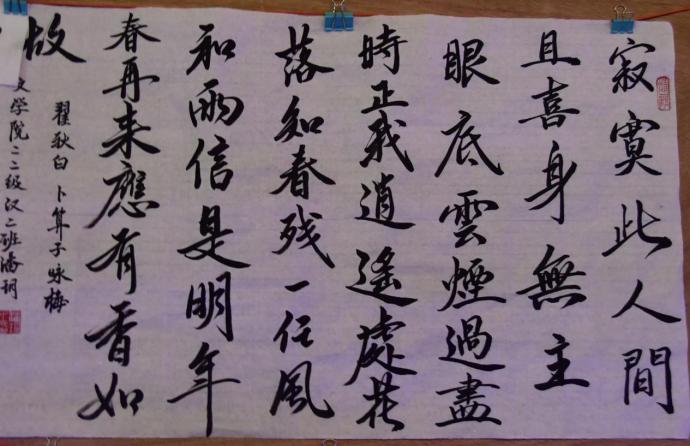 寂寞此人間
且喜身無主
眼底雲煙過盡
時正我逍遙處花
落知春残一任風
和雨信是明年
春再来應有香如
故
翟秋白 卜算子咏梅
文学院二二级汉二班潘玥